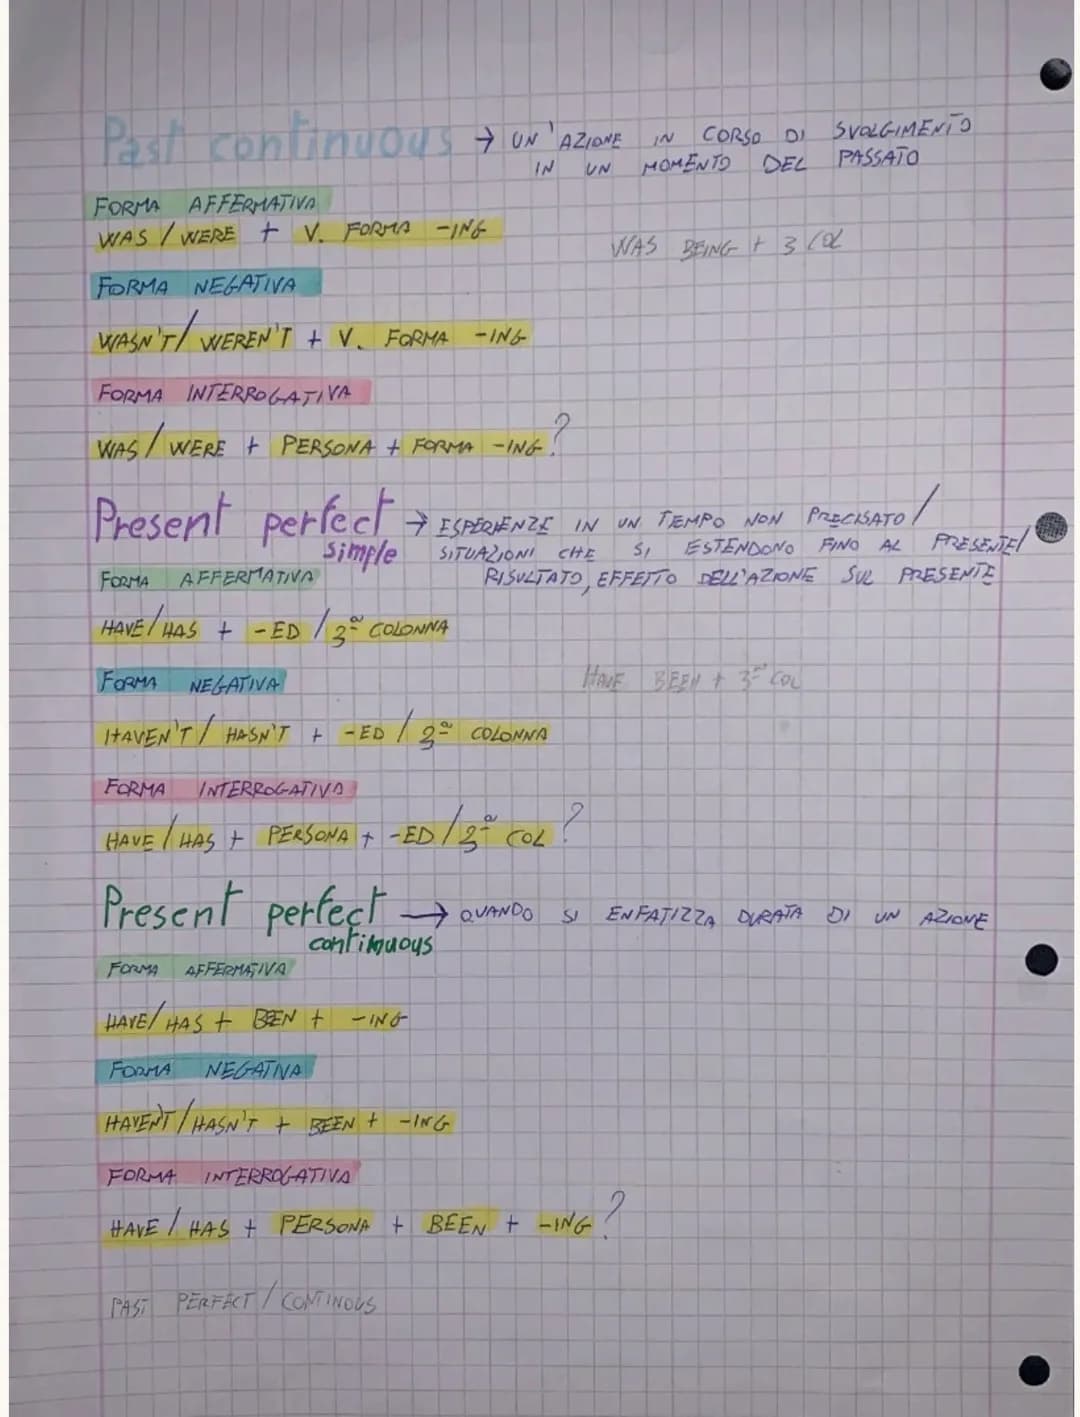 Past continuous → UN'AZIONE IN CORSO DI SVOLGIMENTO
IN UN MOMENTO DEL PASSATO
FORMA AFFERMATIVA
WAS / WERE + V. FORMA -ING
WAS BEING + 3 COL
FORMA NEGATIVA
WASN'T / WEREN'T + V. FORMA -ING
FORMA INTERROGATIVA
WAS / WERE + PERSONA + FORMA -ING?
Present perfect simple → ESPERIENZE IN UN TEMPO NON PRECISATO /
SITUAZIONI CHE SI ESTENDONO FINO AL PRESENTE/
RISULTATO, EFFETTO DELL'AZIONE SUL PRESENTE
FORMA AFFERMATIVA
HAVE / HAS + -ED / 3ª COLONNA
FORMA NEGATIVA
HAVE BEEN + 3ª COL
HAVEN'T / HASN'T + -ED / 3ª COLONNA
FORMA INTERROGATIVA
HAVE / HAS + PERSONA + -ED / 3ª COL?
Present perfect continuous → QUANDO SI ENFATIZZA DURATA DI UN AZIONE
FORMA AFFERMATIVA
HAVE / HAS + BEEN + -ING
FORMA NEGATIVA
HAVEN'T / HASN'T + BEEN + -ING
FORMA INTERROGATIVA
HAVE / HAS + PERSONA + BEEN + -ING?
PAST PERFECT / CONTINOUS